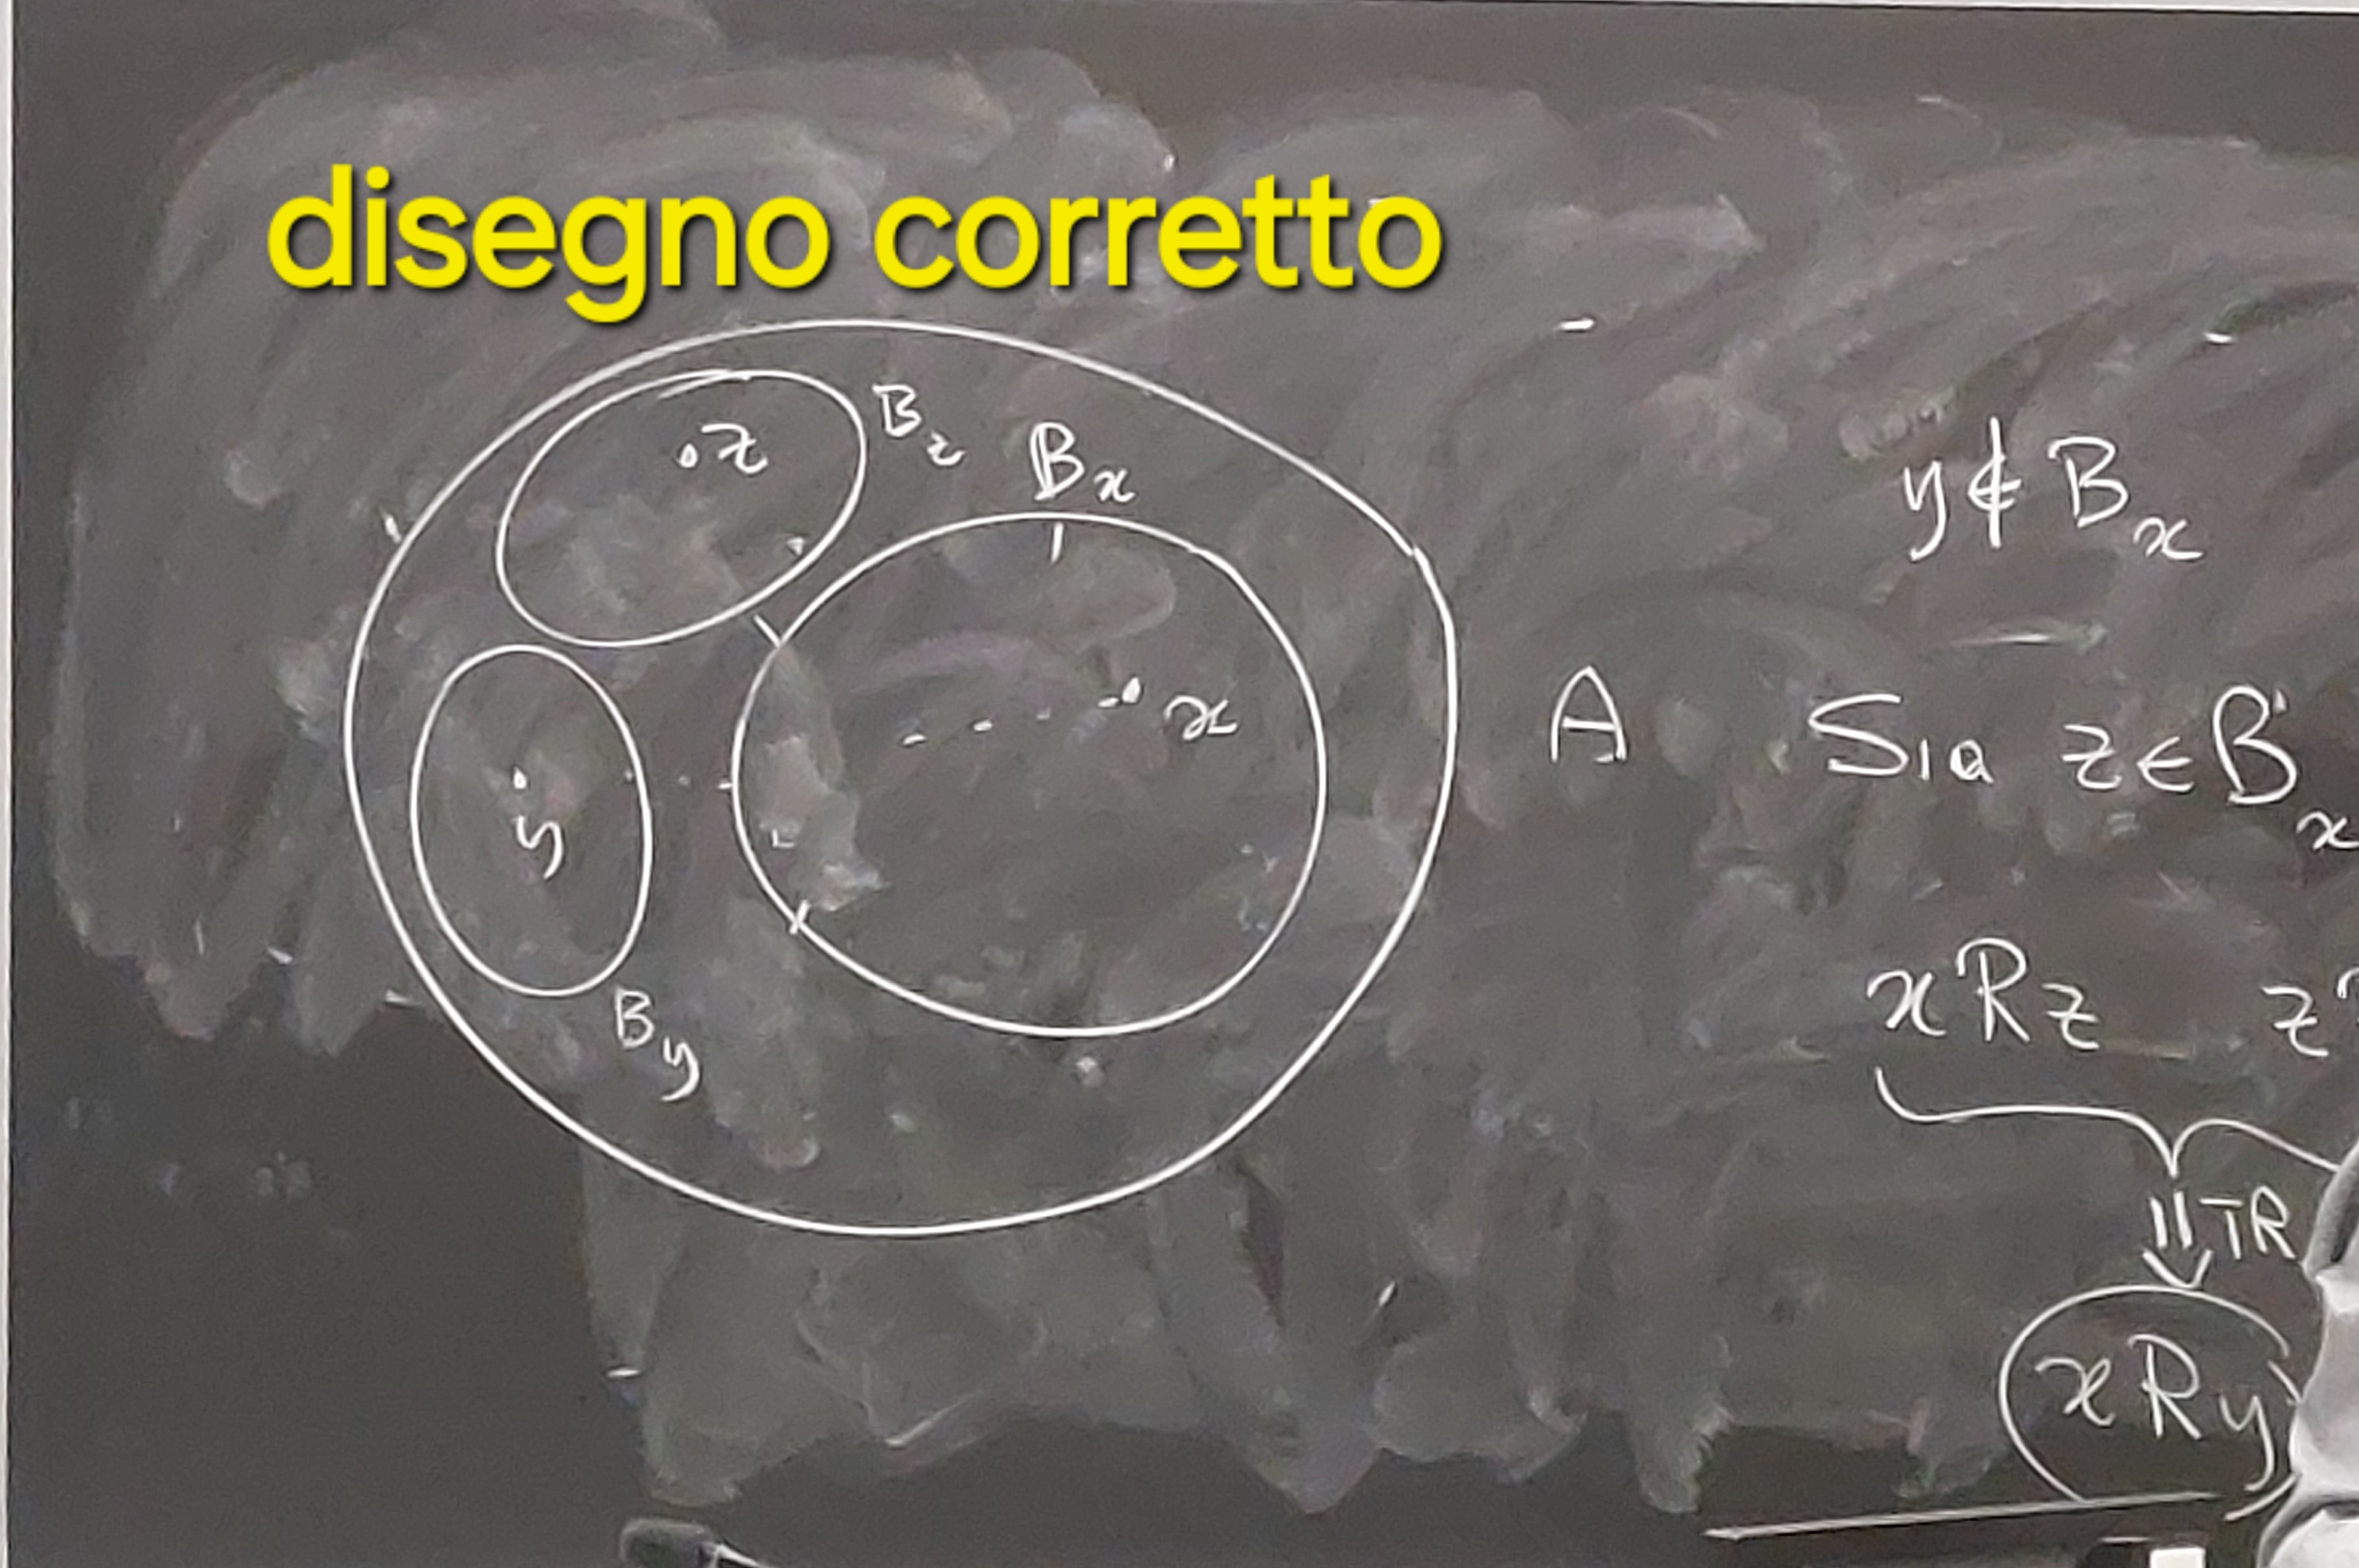 disegno corretto
z
B_z
B_x
x
y
B_y
A
y ∉ B_x
Sia z ∈ B_x
xRz z
TR
xRy